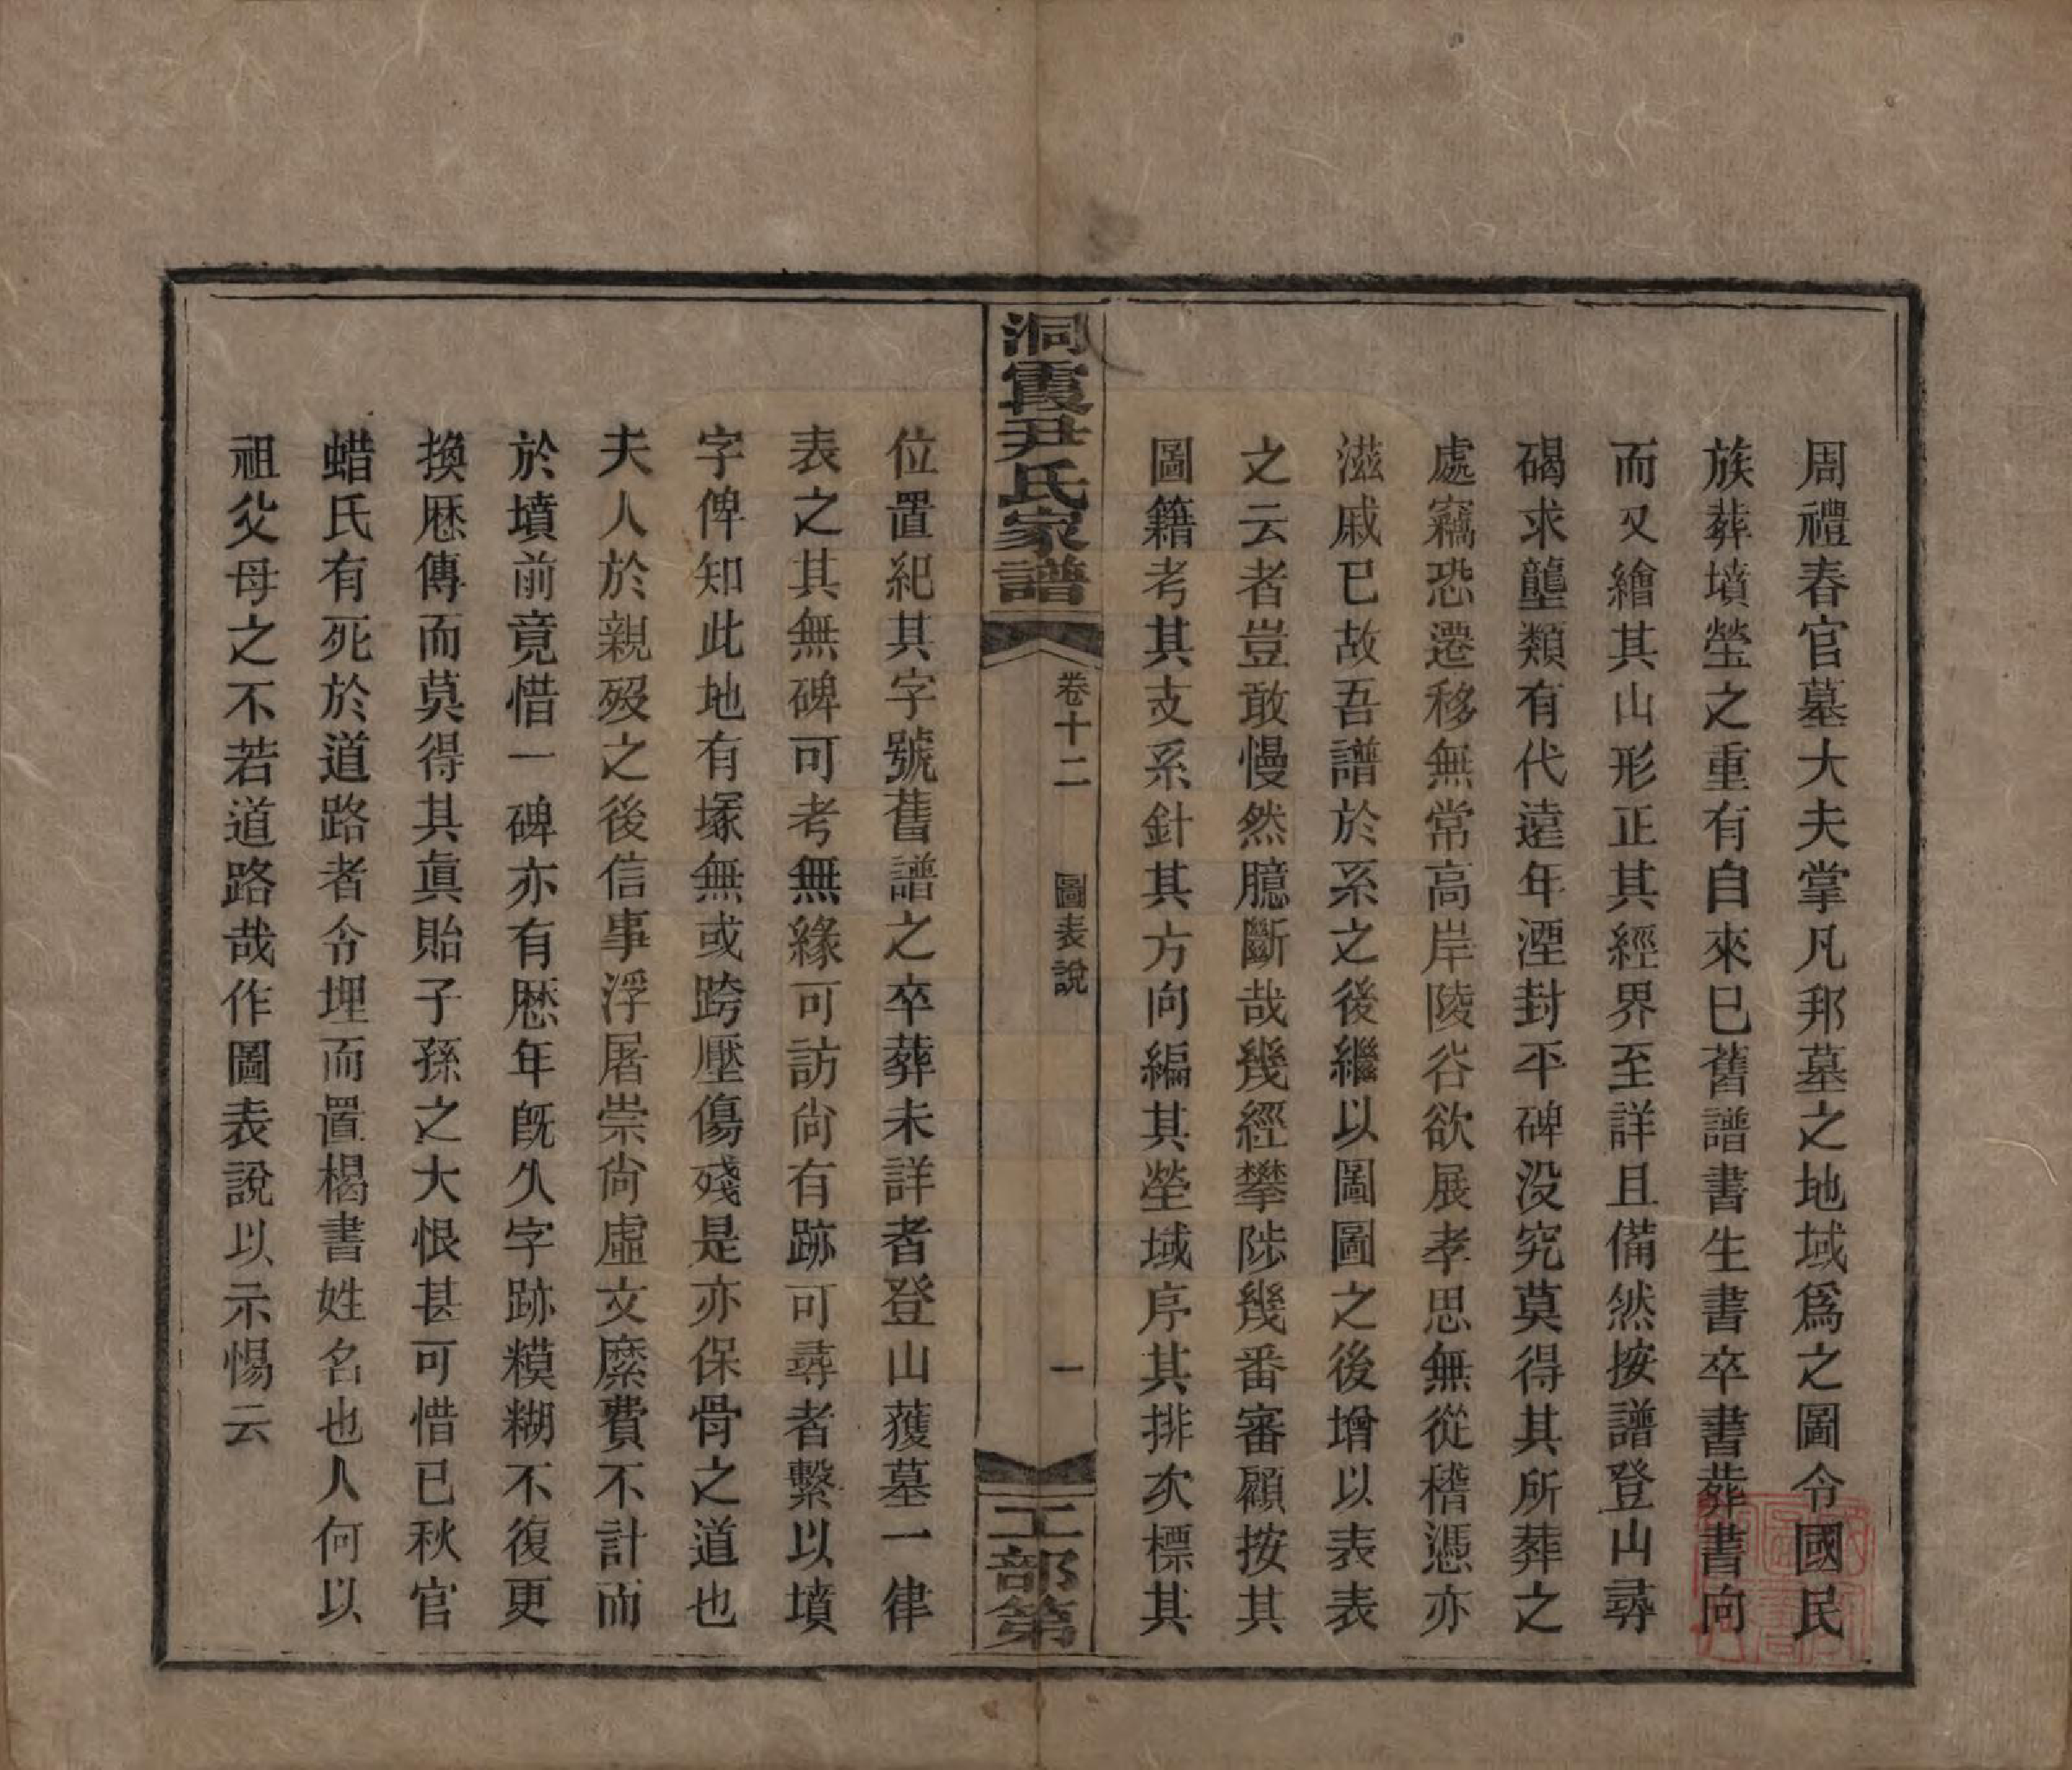 周禮春官墓大夫掌凡邦墓之地域爲之圖令國民
族葬墳瑩之重有自來巳舊譜書生書卒書葬書向
而又繪其山形正其經界至詳且備然按譜登山尋
碣求壟類有代遠年湮封平碑没究莫得其所葬之
處竊恐遷移無常高岸陵谷欲展孝思無從稽憑亦
滋戚巳故吾譜於系之後繼以圖圖之後增以表表
之云者豈敢慢然臆斷哉幾經攀陟幾番審顧按其
圖籍考其支系針其方向編其塋域序其排次標其
洞霞尹氏家譜
卷十二
圖表說
一
工部第
位置紀其字號舊譜之卒葬未詳者登山獲墓一律
表之其無碑可考無緣可訪尙有跡可尋者繫以墳
字俾知此地有塚無或跨壓傷殘是亦保骨之道也
夫人於親歿之後信事浮屠崇尙虛文縻費不計而
於墳前竟惜一碑亦有歷年旣久字跡糢糊不復更
換歷傳而莫得其眞貽子孫之大恨甚可惜已秋官
蜡氏有死於道路者令埋而置楬書姓名也人何以
祖父母之不若道路哉作圖表說以示惕云